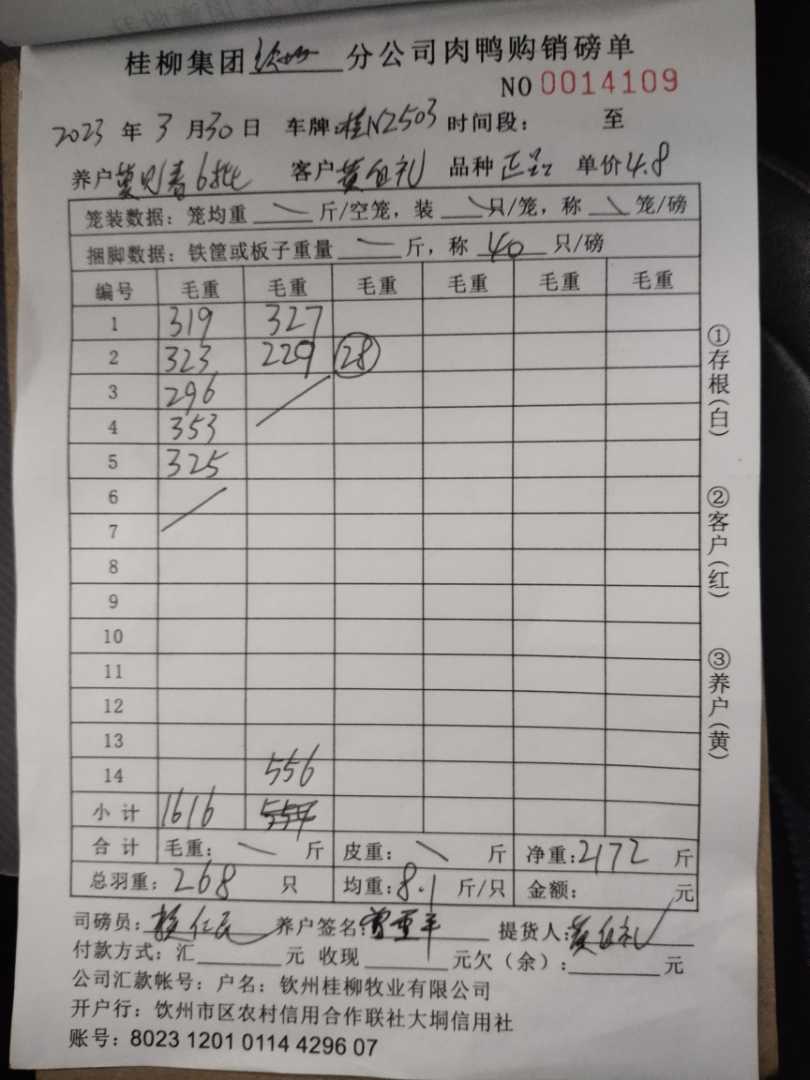 桂柳集团钦州分公司肉鸭购销磅单
NO 0014109
2023年3月30日 车牌:桂N2503 时间段: 至
养户 6批 客户黄 礼 品种正品 单价4.8
笼装数据: 笼均重 \ 斤/空笼, 装 \ 只/笼, 称 \ 笼/磅
捆脚数据: 铁筐或板子重量 \ 斤, 称 40 只/磅
编号 毛重 毛重 毛重 毛重 毛重 毛重
1 319 327
2 323 229 28
3 296
4 353
5 325
6
7
8
9
10
11
12
13
14 556
小计 1616
合计 毛重: \ 斤 皮重: \ 斤 净重:2172 斤
总羽重: 268 只 均重:8.1 斤/只 金额: 元
司磅员: 养户签名: 提货人:黄 礼
付款方式: 汇 元 收现 元欠(余): 元
公司汇款帐号: 户名: 钦州桂柳牧业有限公司
开户行: 钦州市区农村信用合作联社大垌信用社
账号: 8023 1201 0114 4296 07
①存根(白)
②客户(红)
③养户(黄)